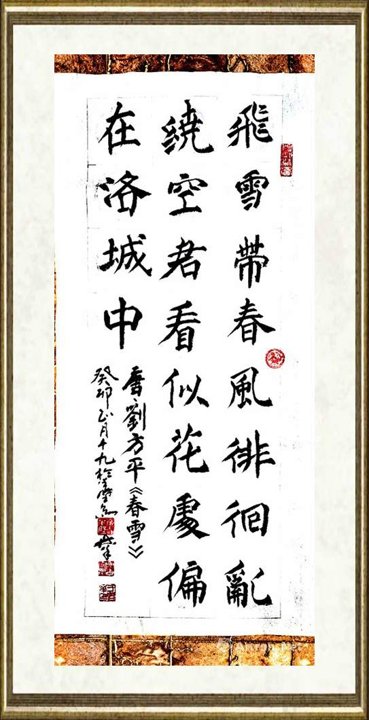 飛雪帶春風徘徊亂
繞空君看似花處偏
在洛城中
唐劉方平《春雪》
癸卯正月十九於